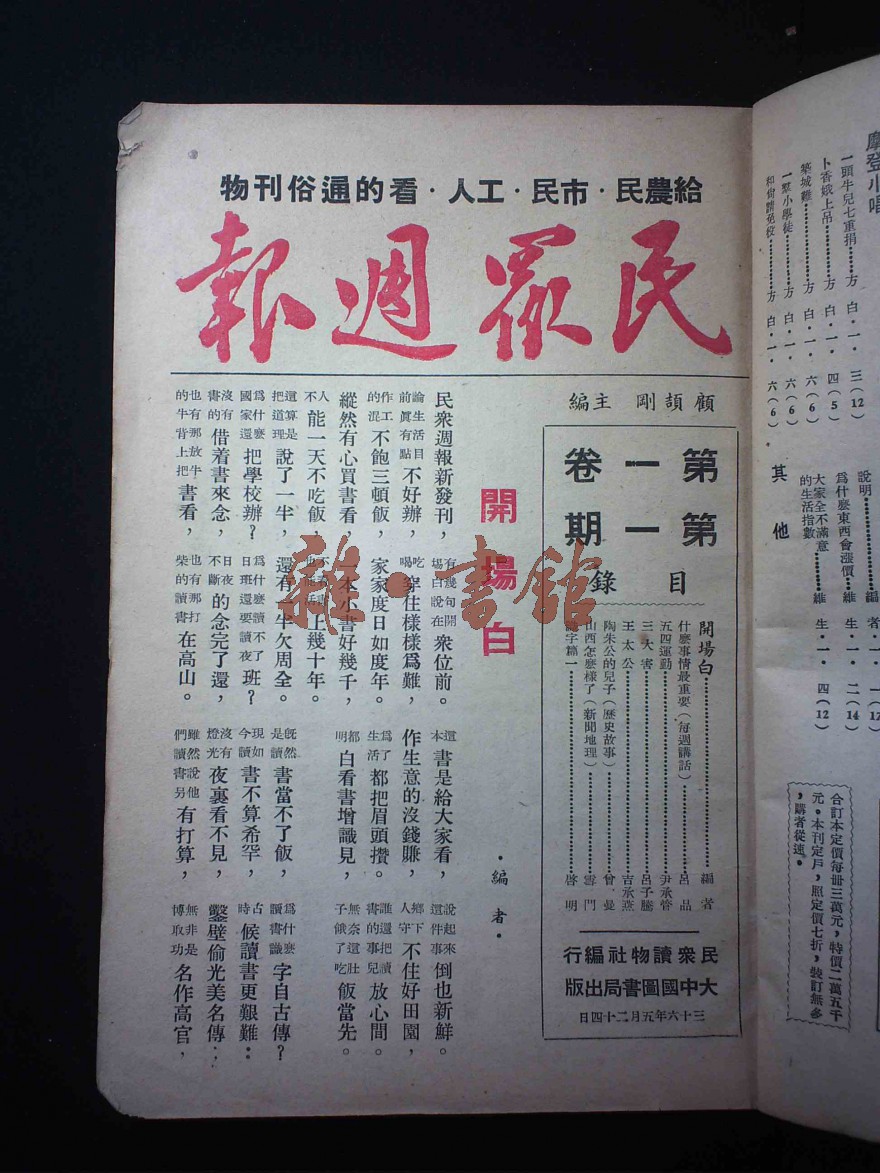 給農民・市民・工人・看的通俗刊物
民眾週報
顧頡剛 主編
第一卷
第一期
目錄
開場白……編者
什麼事情最重要（每週講話）……呂品
五四運動……尹承管
三大害……呂子騰
王太公……吉承燕
陶朱公的兒子（歷史故事）……曾曼
山西怎麼樣了（新聞地理）……雲門
識字篇一……啓明
民衆讀物社編行
大中國圖書局出版
三十六年五月二十四日
開場白
・編者・
民衆週報新發刊，有幾句開場白說在衆位前。這本書是給大家看，說起來這件事倒也新鮮。
論生活目前眞有點不好辦，吃喝穿住樣樣爲難，作生意的沒錢賺，鄉下人守不住好田園，
作工的混不飽三頓飯，家家度日如度年。爲了生活都把眉頭攢。誰還把讀書的事兒放心間。
縱然有心買書看，一本小書好幾千，都明白看書增識見，無奈這肚子餓了吃飯當先。
人不能一天不吃飯，不看書也能活上幾十年。
這算是把道理說了一半，還有一半欠周全。旣然是讀書當不了飯，爲什麼讀書識字自古傳？
爲什麼國家還把學校辦？爲什麼讀不了日班還要讀夜班？現如今讀書不算希罕，古時候讀書更艱難：
沒有書的借着書來念，日夜不斷的念完了還，沒有燈光夜裏看不見，鑿壁偷光美名傳；
也有那放牛的牛背上把書看，也有那打柴的讀書在高山。雖然說他們讀書另有打算，無非是博取功名作高官，
雜・書館
摩登小唱
一頭牛兒七重捐……方白・一・三(12)
卜香娥上吊……方白・一・四(5)
築城難……方白・一・六(6)
一羣小學徒……方白・一・六(6)
和尚請免役……方白・一・六(6)
其他
說明……編者・一・
爲什麼東西會漲價……維生・一・二(14)
大家全不滿意的生活指數……維生・一・四(12)
合訂本定價每冊三萬元，特價二萬五千
元。本刊定戶，照定價七折，裝訂無多
，購者從速。